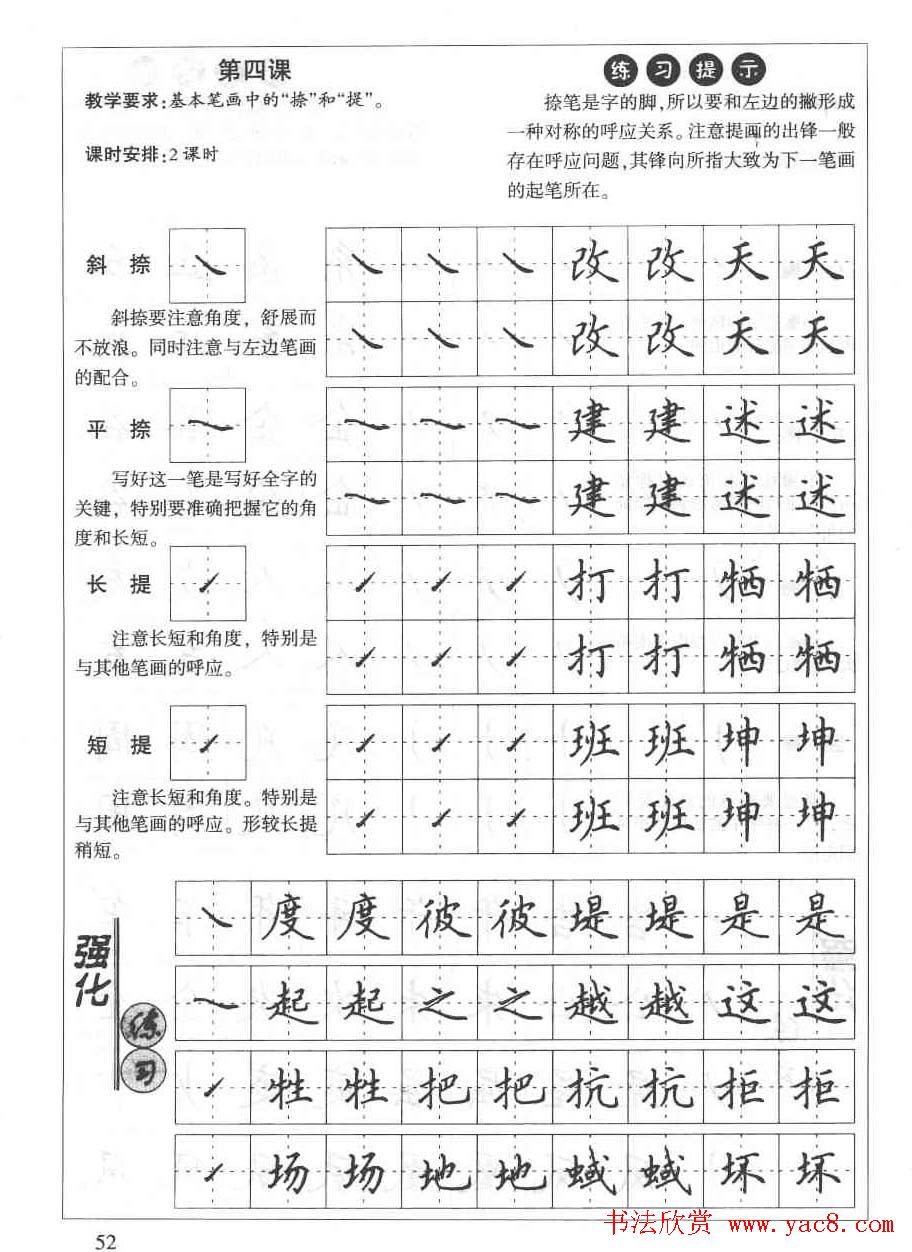 第四课
教学要求:基本笔画中的“捺”和“提”。
课时安排:2课时
练习提示
捺笔是字的脚,所以要和左边的撇形成
一种对称的呼应关系。注意提画的出锋一般
存在呼应问题,其锋向所指大致为下一笔画
的起笔所在。
斜 捺
斜捺要注意角度，舒展而
不放浪。同时注意与左边笔画
的配合。
㇏ ㇏ ㇏ 改 改 天 天
㇏ ㇏ ㇏ 改 改 天 天
平 捺
写好这一笔是写好全字的
关键，特别要准确把握它的角
度和长短。
㇏ ㇏ ㇏ 建 建 述 述
㇏ ㇏ ㇏ 建 建 述 述
长 提
注意长短和角度，特别是
与其他笔画的呼应。
㇀ ㇀ ㇀ 打 打 牺 牺
㇀ ㇀ ㇀ 打 打 牺 牺
短 提
注意长短和角度。特别是
与其他笔画的呼应。形较长提
稍短。
㇀ ㇀ ㇀ 班 班 坤 坤
㇀ ㇀ ㇀ 班 班 坤 坤
强化练习
㇏ 度 度 彼 彼 堤 堤 是 是
㇏ 起 起 之 之 越 越 这 这
㇀ 牲 牲 把 把 抗 抗 拒 拒
㇀ 场 场 地 地 蜮 蜮 坏 坏
52
书法欣赏 www.yac8.com